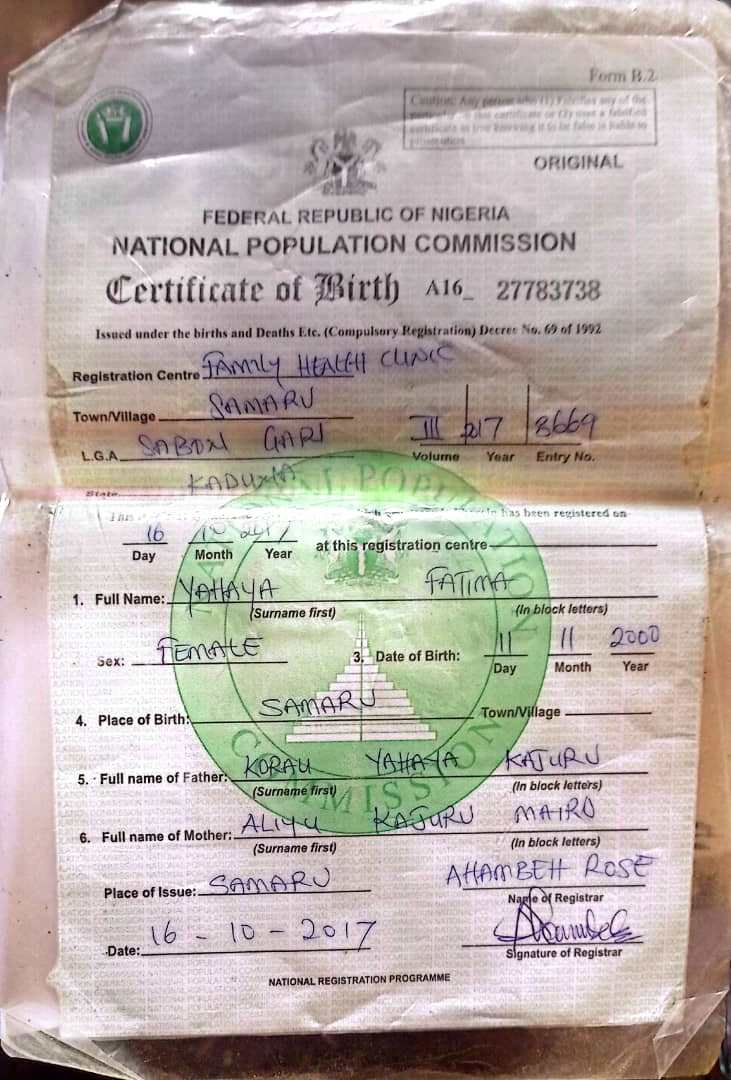 Form B.2
Caution: Any person who (1) Falsifies any of the
certificate or (2) uses a falsified
certificate as true knowing it to be false is liable to
prosecution
ORIGINAL
FEDERAL REPUBLIC OF NIGERIA
NATIONAL POPULATION COMMISSION
Certificate of Birth A16_ 27783738
Issued under the births and Deaths Etc. (Compulsory Registration) Decree No. 69 of 1992
Registration Centre FAMILY HEALTH CLINIC
Town/Village SAMARU
L.G.A. SABON GARI III 217 3669
Volume Year Entry No.
State KADUNA
has been registered on
16 10 2017 at this registration centre
Day Month Year
1. Full Name: YAHAYA FATIMA
(Surname first) (In block letters)
Sex: FEMALE 3. Date of Birth: 11 11 2000
Day Month Year
4. Place of Birth: SAMARU Town/Village
5. Full name of Father: KORAU YAHAYA KAJURU
(Surname first) (In block letters)
6. Full name of Mother: ALIYU KAJURU MAIRO
(Surname first) (In block letters)
Place of Issue: SAMARU AHAMBEH ROSE
Name of Registrar
Date: 16 - 10 - 2017
Signature of Registrar
NATIONAL REGISTRATION PROGRAMME
NATIONAL POPULATION COMMISSION